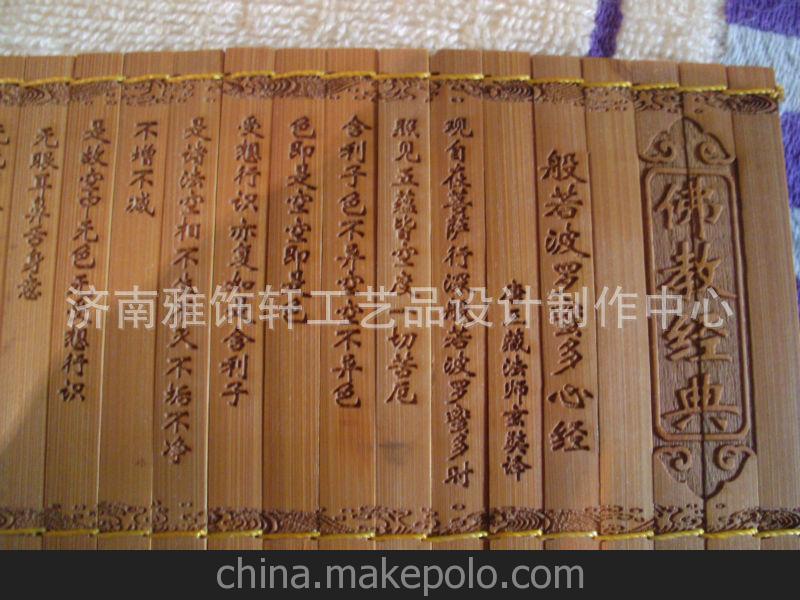 佛教经典
般若波罗蜜多心经
唐三藏法师玄奘译
观自在菩萨行深般若波罗蜜多时
照见五蕴皆空度一切苦厄
舍利子色不异空空不异色
色即是空空即是色
受想行识亦复如是舍利子
是诸法空相不生不灭不垢不净
不增不减
是故空中无色无受想行识
无眼耳鼻舌身意
济南雅饰轩工艺品设计制作中心
china.makepolo.com